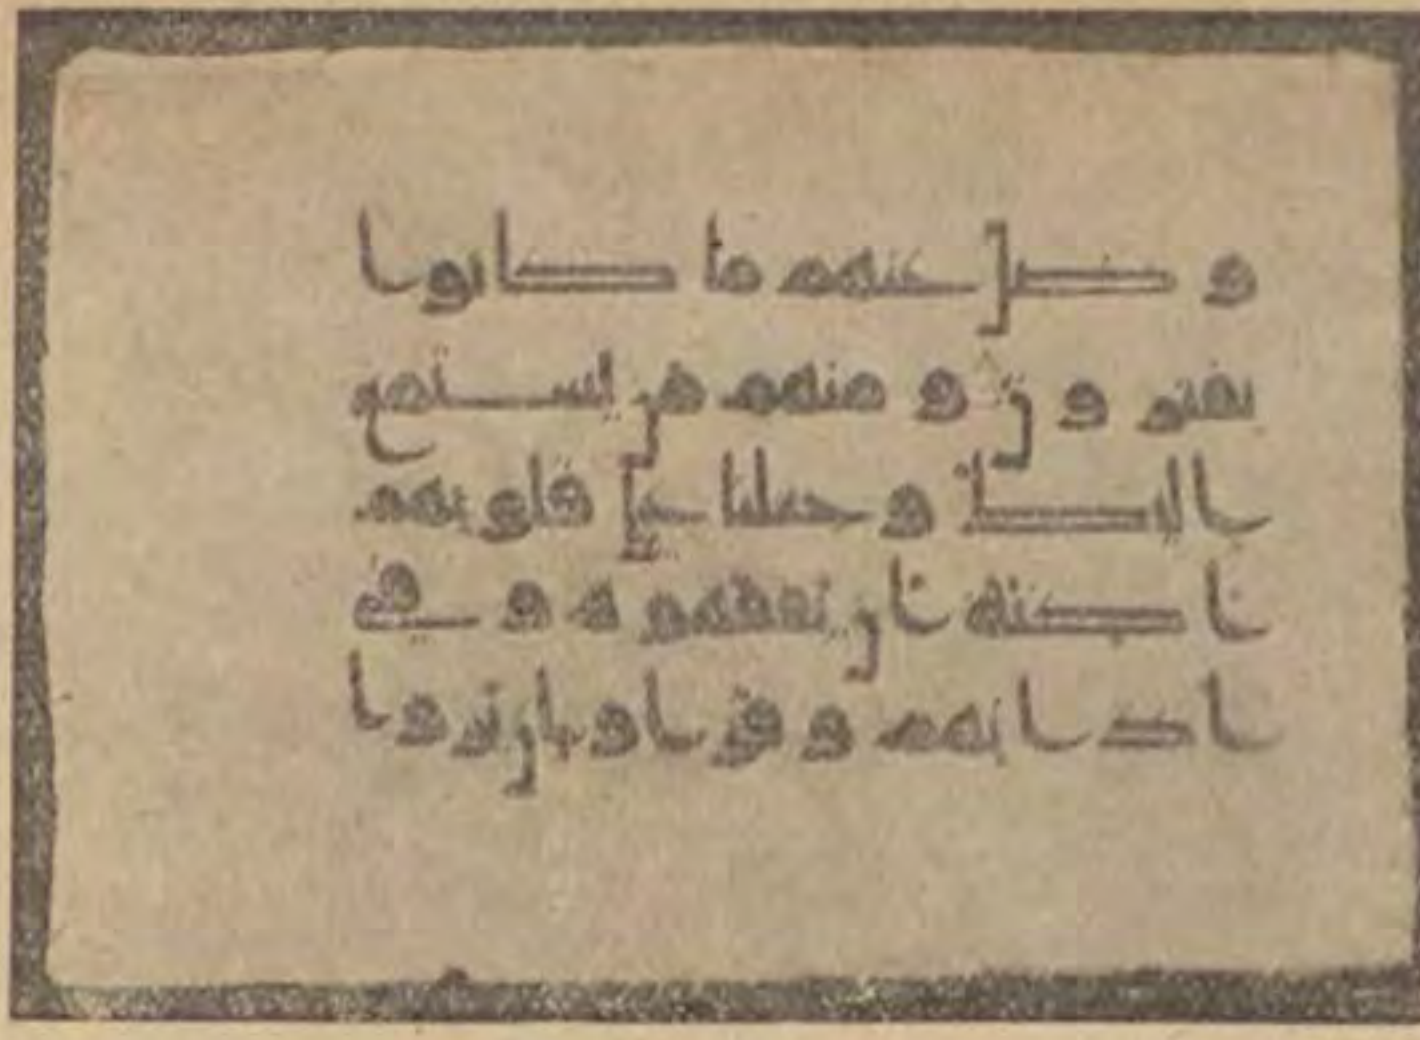 وضل عنهم ما كانوا
يفترون ومنهم من يستمع
اليك وجعلنا على قلوبهم
اكنة ان يفقهوه وفي
اذانهم وقرا وان يروا